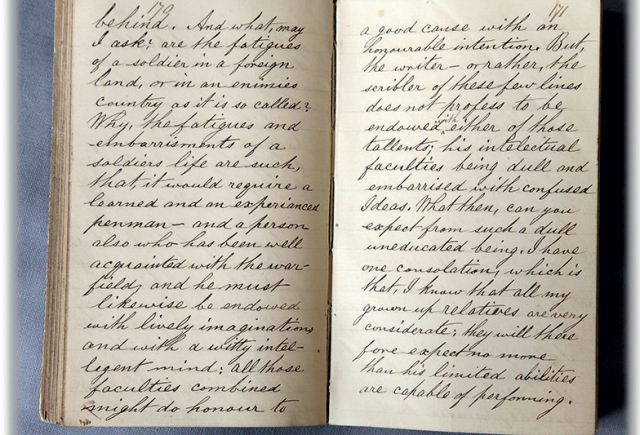 179
behind. And what, may
I ask; are the fatigues
of a soldier in a foreign
land, or in an enimies
country as it is so called?
Why, the fatigues and
embarrisments of a
soldiers life are such,
that it would require a
learned and an experianced
penman — and a person
also who has been well
acquainted with the war-
field, and he must
likewise be endowed
with lively imaginations
and with a witty intel-
legent mind: all those
faculties combined
might do honour to
171
a good cause with an
honourable intention. But,
the writer — or rather, the
scribler of these few lines
does not profess to be
endowed with either of those
tallents; his intelectual
faculties being dull and
embarrised with confused
Ideas. What then, can you
expect from such a dull
uneducated being. I have
one consolation, which is
that, I know that all my
grown up relatives are very
considerate: they will there
fore expect no more
than his limited abilities
are capable of performing.